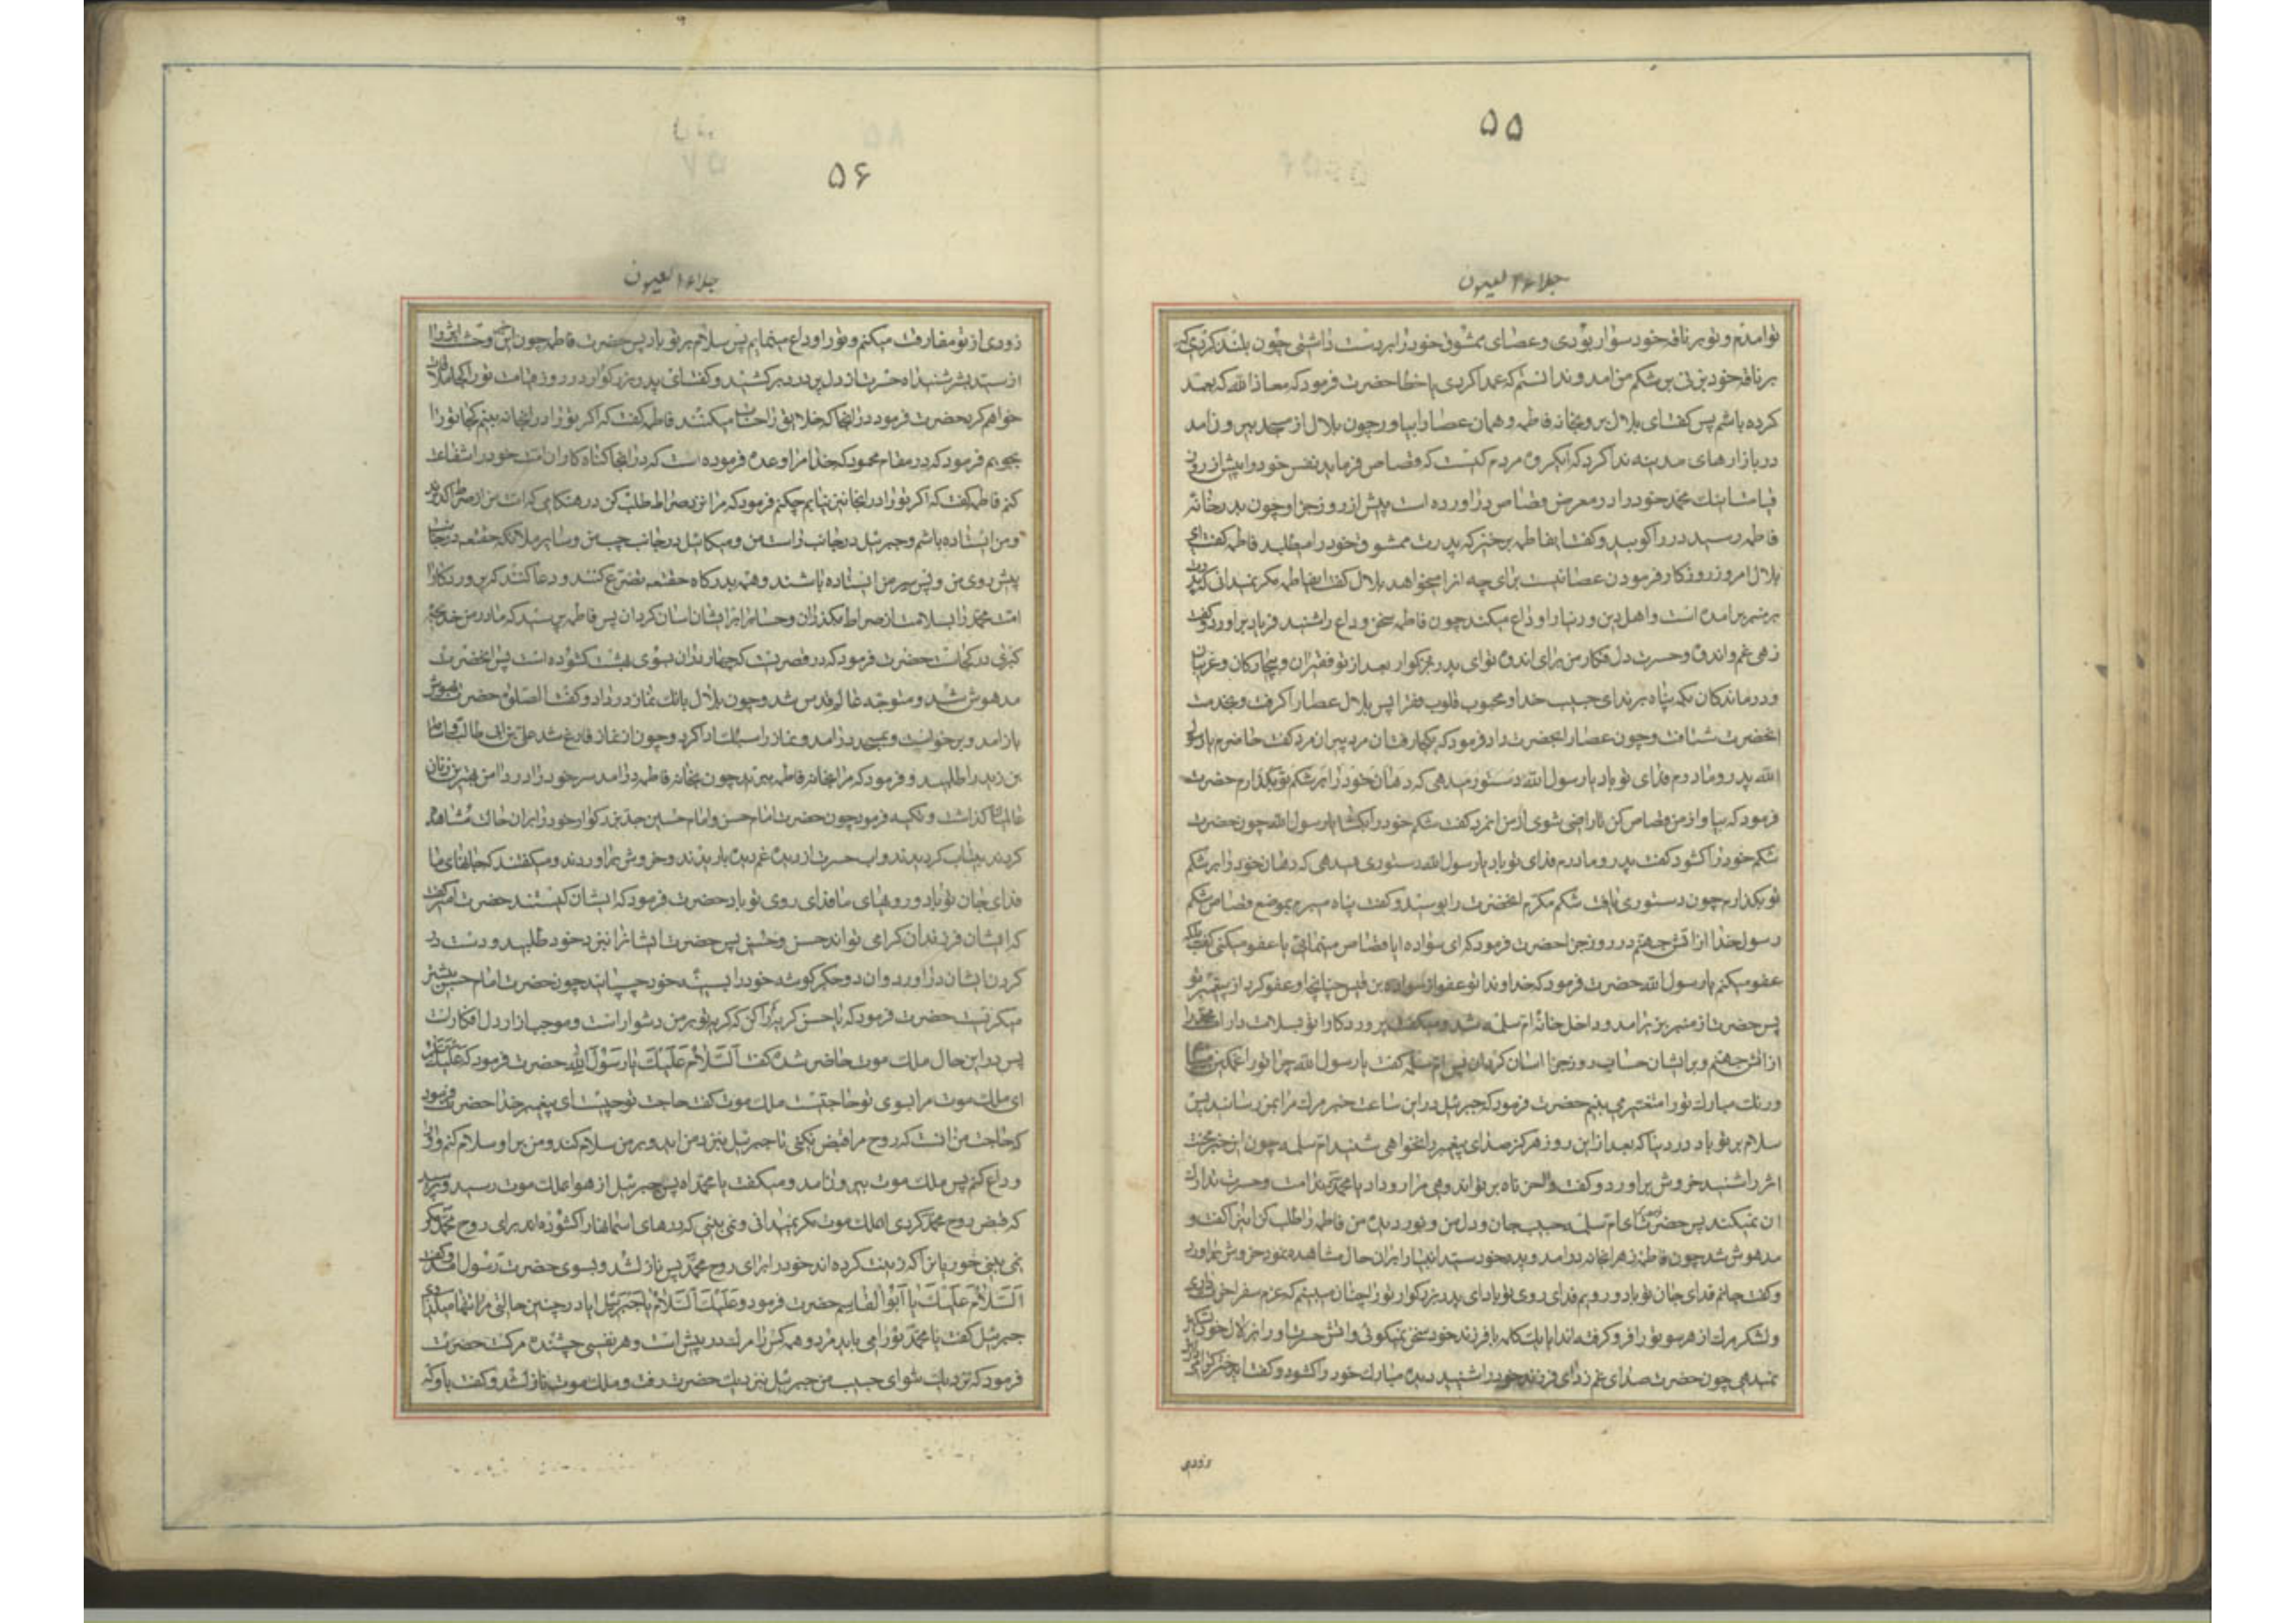 ۵۵
جلاء العیون
تو امدم و تو بر ناقه خود سوار بودی و عصای ممشوق خود را بردست داشتی چون بلند کردی که
بر ناقه خود بزنی بر شکم من امد و ندانستم که عمدا کردی یا خطا حضرت فرمود که معاذ الله که بعمد
کرده باشم پس کفت ای بلال برو بخانه فاطمه و همان عصا را بیاور چون بلال از مسجد بیرون امد
در بازارهای مدینه ندا کرد که ایکروه مردم کیست که قصاص فرماید نفس خود را پیش از روز
قیامت اینك محمد خود را در معرض قصاص دراورده است پیش از روز جزا و چون بدر خانۀ
فاطمه رسید در را کوبید و کفت ایفاطمه برخیز که پدرت ممشوق خود را میطلبد فاطمه کفت ای
بلال امروز روز کار فرمودن عصا نیست برای چه انرا میخواهد بلال کفت ایفاطمه مکر نمیدانی که پدرت
بر منبر برامده است و اهل دین و دنیا را وداع میکند چون فاطمه سخن وداع را شنید فریاد براورد و کفت
زهی غم و اندوه و حسرت دل فکار من برای اندوه تو ای پدر بزرکوار بعد از تو فقیران و بیچارکان و غریبان
و درماندکان بکه پناه برند ای حبیب خدا و محبوب قلوب فقرا پس بلال عصا را کرفت و بخدمت
انحضرت شتافت و چون عصا را بحضرت داد فرمود که بکجا رفت ان مرد پیر ان مرد کفت حاضرم یا رسول
الله پدر و مادرم فدای تو باد یا رسول الله دستور میدهی که دهان خود را بر شکم تو بکذارم حضرت
فرمود که بیا و از من قصاص کن تا راضی شوی از من انمرد کفت شکم خود را بکشا یا رسول الله چون حضرت
شکم خود را کشود کفت پدر و مادرم فدای تو باد یا رسول الله دستوری میدهی که دهان خود را بر شکم
تو بکذارم چون دستوری یافت شکم مکرم انحضرت را بوسید و کفت پناه میبرم بموضع قصاص شکم
رسول خدا از اتش جهنم در روز جزا حضرت فرمود که ای سواده ایا قصاص مینمائی یا عفو میکنی کفت بلکه
عفو میکنم یا رسول الله حضرت فرمود که خداوندا تو عفو از سواده بن قیس چنانچه او عفو کرد از پیغمبر تو
پس حضرت از منبر بزیر امد و داخل خانۀ ام سلمه شد و میکفت پروردکارا تو بسلامت دار امت محمد را
از اتش جهنم و بر ایشان حساب روز جزا اسان کردان پس ام سلمه کفت یا رسول الله چرا تو را غمکین
و رنك مبارك تو را متغیر می بینم حضرت فرمود که جبرئیل در این ساعت خبر مرك مرا بمن رسانید پس
سلام بر تو باد در دنیا که بعد از این روز هرکز صدای پیغمبر را نخواهی شنید ام سلمه چون این خبر محنت
اثر را شنید خروش براورد و کفت واحزناه بر تو اندوهی مرا رو داد یا محمد که ندامت و حسرت تدارك
ان نمیکند پس حضرت فرمود که ای ام سلمه حبیب جان و دل من و نور دیدۀ من فاطمه را طلب کن اینرا کفت و
مدهوش شد چون فاطمه زهرا بخانه درامد و پدر خود سید انبیا را بران حال مشاهده نمود خروش براورد
و کفت جانم فدای جان تو باد و رویم فدای روی تو باد ای پدر بزرکوار تو را چنان میبینم که عزم سفر اخرت داری
و لشکر مرك از هر سو تو را فرو کرفته اند ایا یك کلمه با فرزند خود سخن نمیکوئی و اتش حسرت او را بزلال خود تسکین
نمیدهی چون حضرت صدای غم زدای فرزند خود را شنید دیده مبارك خود را کشود و کفت ایدختر کرامی
زودی
۵۶
جلاء العیون
زودی از تو مفارقت میکنم و تو را وداع مینمایم پس سلام بر تو باد پس حضرت فاطمه چون این خبر وحشت اثر را
از سید بشر شنید اه حسرت از دل پر درد برکشید و کفت ای پدر بزرکوار در روز قیامت تو را کجا ملاقات
خواهم کرد حضرت فرمود در انجا که خلایق را حساب میکنند فاطمه کفت که اکر تو را در انجا نه بینم کجا تو را
بجویم فرمود که در مقام محمود که خدا مرا وعده فرموده است که در انجا کناه کاران امت خود را شفاعت
کنم فاطمه کفت که اکر تو را در انجا نیز نیابم چکنم فرمود که مرا نزد صراط طلب کن در هنکامی که امت من از صراط کذرند
و من ایستاده باشم و جبرئیل در جانب راست من و میکائیل در جانب چپ من و سایر ملائکه حقتعه در جانب
پیش روی من و پس سر من ایستاده باشند و همه بدرکاه حقتعه تضرع کنند و دعا کنند که پروردکارا
امت محمد را بسلامت از صراط بکذران و حساب را بر ایشان اسان کردان پس فاطمه پرسید که مادر من خدیجه
کبری در کجاست حضرت فرمود که در قصریست که چهار در ان بسوی بهشت کشوده است پس انحضرت
مدهوش شد و متوجه عالم قدس شد و چون بلال بانك نماز در داد و کفت الصلوة حضرت بهوش
باز امد و برخواست و بمسجد درامد و نماز را سبك ادا کرد و چون از نماز فارغ شد علی بن ابی طالب و اسامة
بن زید را طلبید و فرمود که مرا بخانه فاطمه ببرید چون بخانه فاطمه درامد سر خود را در دامن بهترین زنان
عالمیان کذاشت و تکیه فرمود چون حضرت امام حسن و امام حسین جد بزرکوار خود را بران حال مشاهده
کردند بیتاب کردیدند و اب حسرت از دیده غم دیده باریدند و خروش براوردند و میکفتند که جانهای ما
فدای جان تو باد و روهای ما فدای روی تو باد حضرت فرمود که ایشان کیستند حضرت امیر کفت
که ایشان فرزندان کرامی تواند حسن و حسین پس حضرت ایشانرا نزد خود طلبید و دست در
کردن ایشان دراورد و ان دو جکر کوشه خود را بسینه خود چسپانید چون حضرت امام حسن بیشتر
میکریست حضرت فرمود که یا حسن کریه را کم کن که کریه تو بر من دشوار است و موجب ازار دل افکارست
پس در این حال ملك موت حاضر شده کفت اَلسَّلامُ عَلَیكَ یا رَسُولَ اللهِ حضرت فرمود که عَلَیكَ السَّلام
ای ملك موت مرا بسوی تو حاجتیست ملك موت کفت حاجت تو چیست ای پیغمبر خدا حضرت فرمود
که حاجت من انست که روح مرا قبض نکنی تا جبرئیل بنزد من اید و بر من سلام کند و من بر او سلام کنم و او را
وداع کنم پس ملك موت بیرون امد و میکفت یا محمداه پس جبرئیل از هوا بملك موت رسید و پرسید
که قبض روح محمد کردی ایملك موت مکر نمیدانی و نمی بینی که درهای اسمانها را کشوده اند برای روح محمد مکر
نمی بینی حوریانرا که زینت کرده اند خود را برای روح محمد پس نازل شد و بسوی حضرت رسول امد و کفت
اَلسَّلامُ عَلَیكَ یا اَبُوالْقاسِم حضرت فرمود و عَلَیكَ السَّلامُ یا جَبْرَئیل ایا در چنین حالتی مرا تنها میکذاری
جبرئیل کفت یا محمد تو را می باید مرد و همه کس را مرك در پیش است و هر نفسی چشنده مرکست حضرت
فرمود که نزدیك شو ای حبیب من جبرئیل بنزدیك حضرت رفت و ملك موت نازل شد و کفت باو که